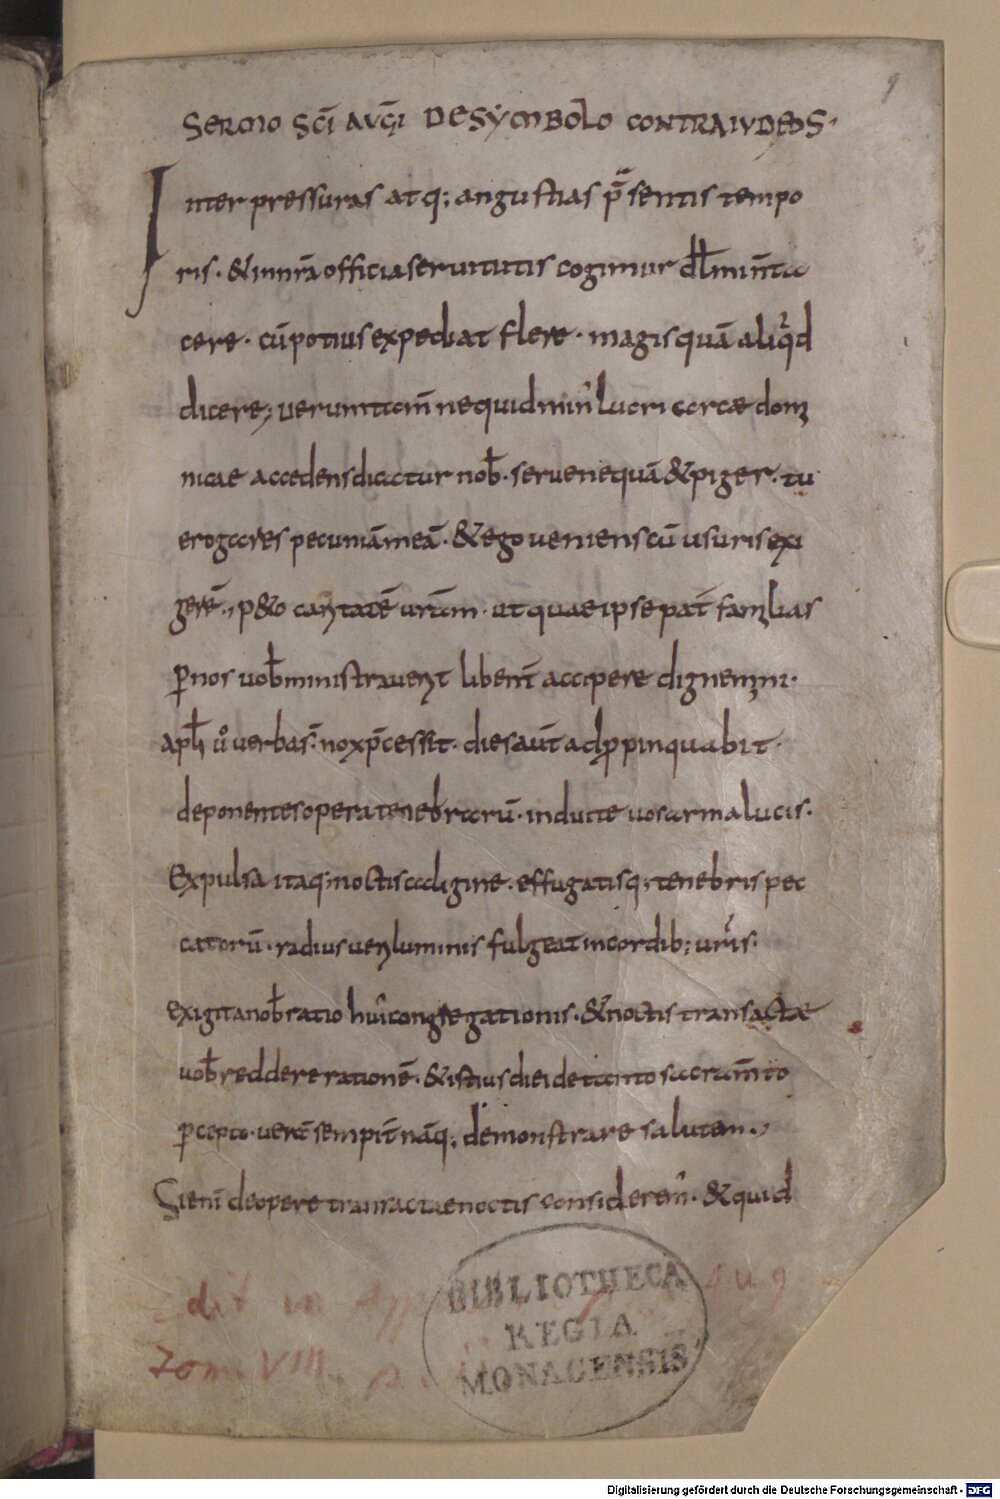 9
SERMO SC̄I AUḠI DE SYMBOLO CONTRA IUDEOS·
Inter pressuras atq; angustias p̄sentis tempo
ris· & in n̄rā officia seruitutis cogimur dīl min̄ ta
cere· cū potius expediat flere· magis quā aliqͥd
dicere; uerumtam̄ ne quid min' lucri carcae domi
nicae accedens dicatur nob̄· serue nequā & piger· tu
erogares pecuniā meā· & ego ueniens cū usuris exi
gerē·, peto caritatē uram· ut quae ipse pat̄ familias
ꝑ nos uob̄ ministrauerit libent̄ accipere dignemini·
apl̄i uͦ uerba s̄· nox p̄cessit· dies aut̄ adpropinquabit·
deponentes opera tenebrarū· induite uos arma lucis·
Expulsa itaq; noctis caligine· effugatisq; tenebris pec
catorū· radius ueri luminis fulgeat in cordib; uris·
exigit a nob̄ ratio hui' congregationis· & noctis transactae
uob̄ reddere rationē· & istius diei de tanto sacram̄to
ꝑcepto· uerā sempit̄nāq; demonstrare salutem·,
Si eni̅ de opere transactae noctis considerem'· & quid
edit in App Aug
Tom. VIII. p.
BIBLIOTHECA
REGIA
MONACENSIS
Digitalisierung gefördert durch die Deutsche Forschungsgemeinschaft - DFG